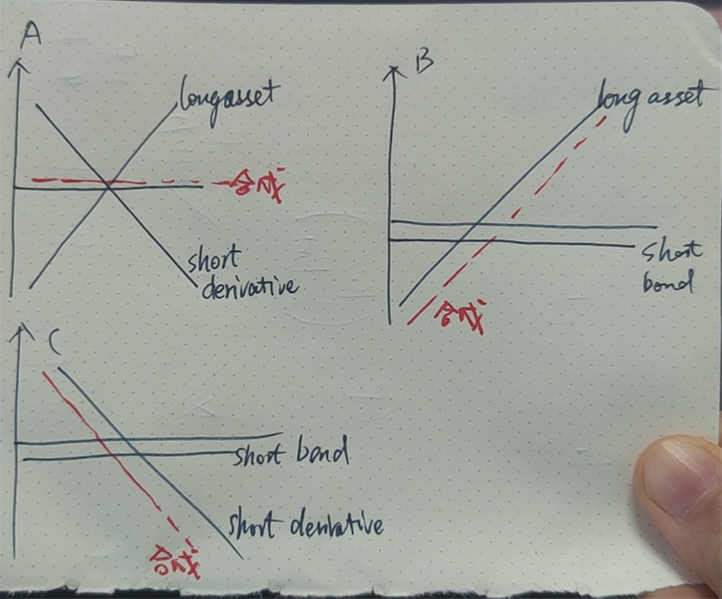 A
longasset
合成
short
derivative
B
long asset
short
bond
合成
C
short bond
short derivative
合成